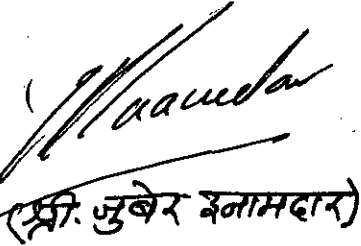 (श्री. जुबेर इनामदार)